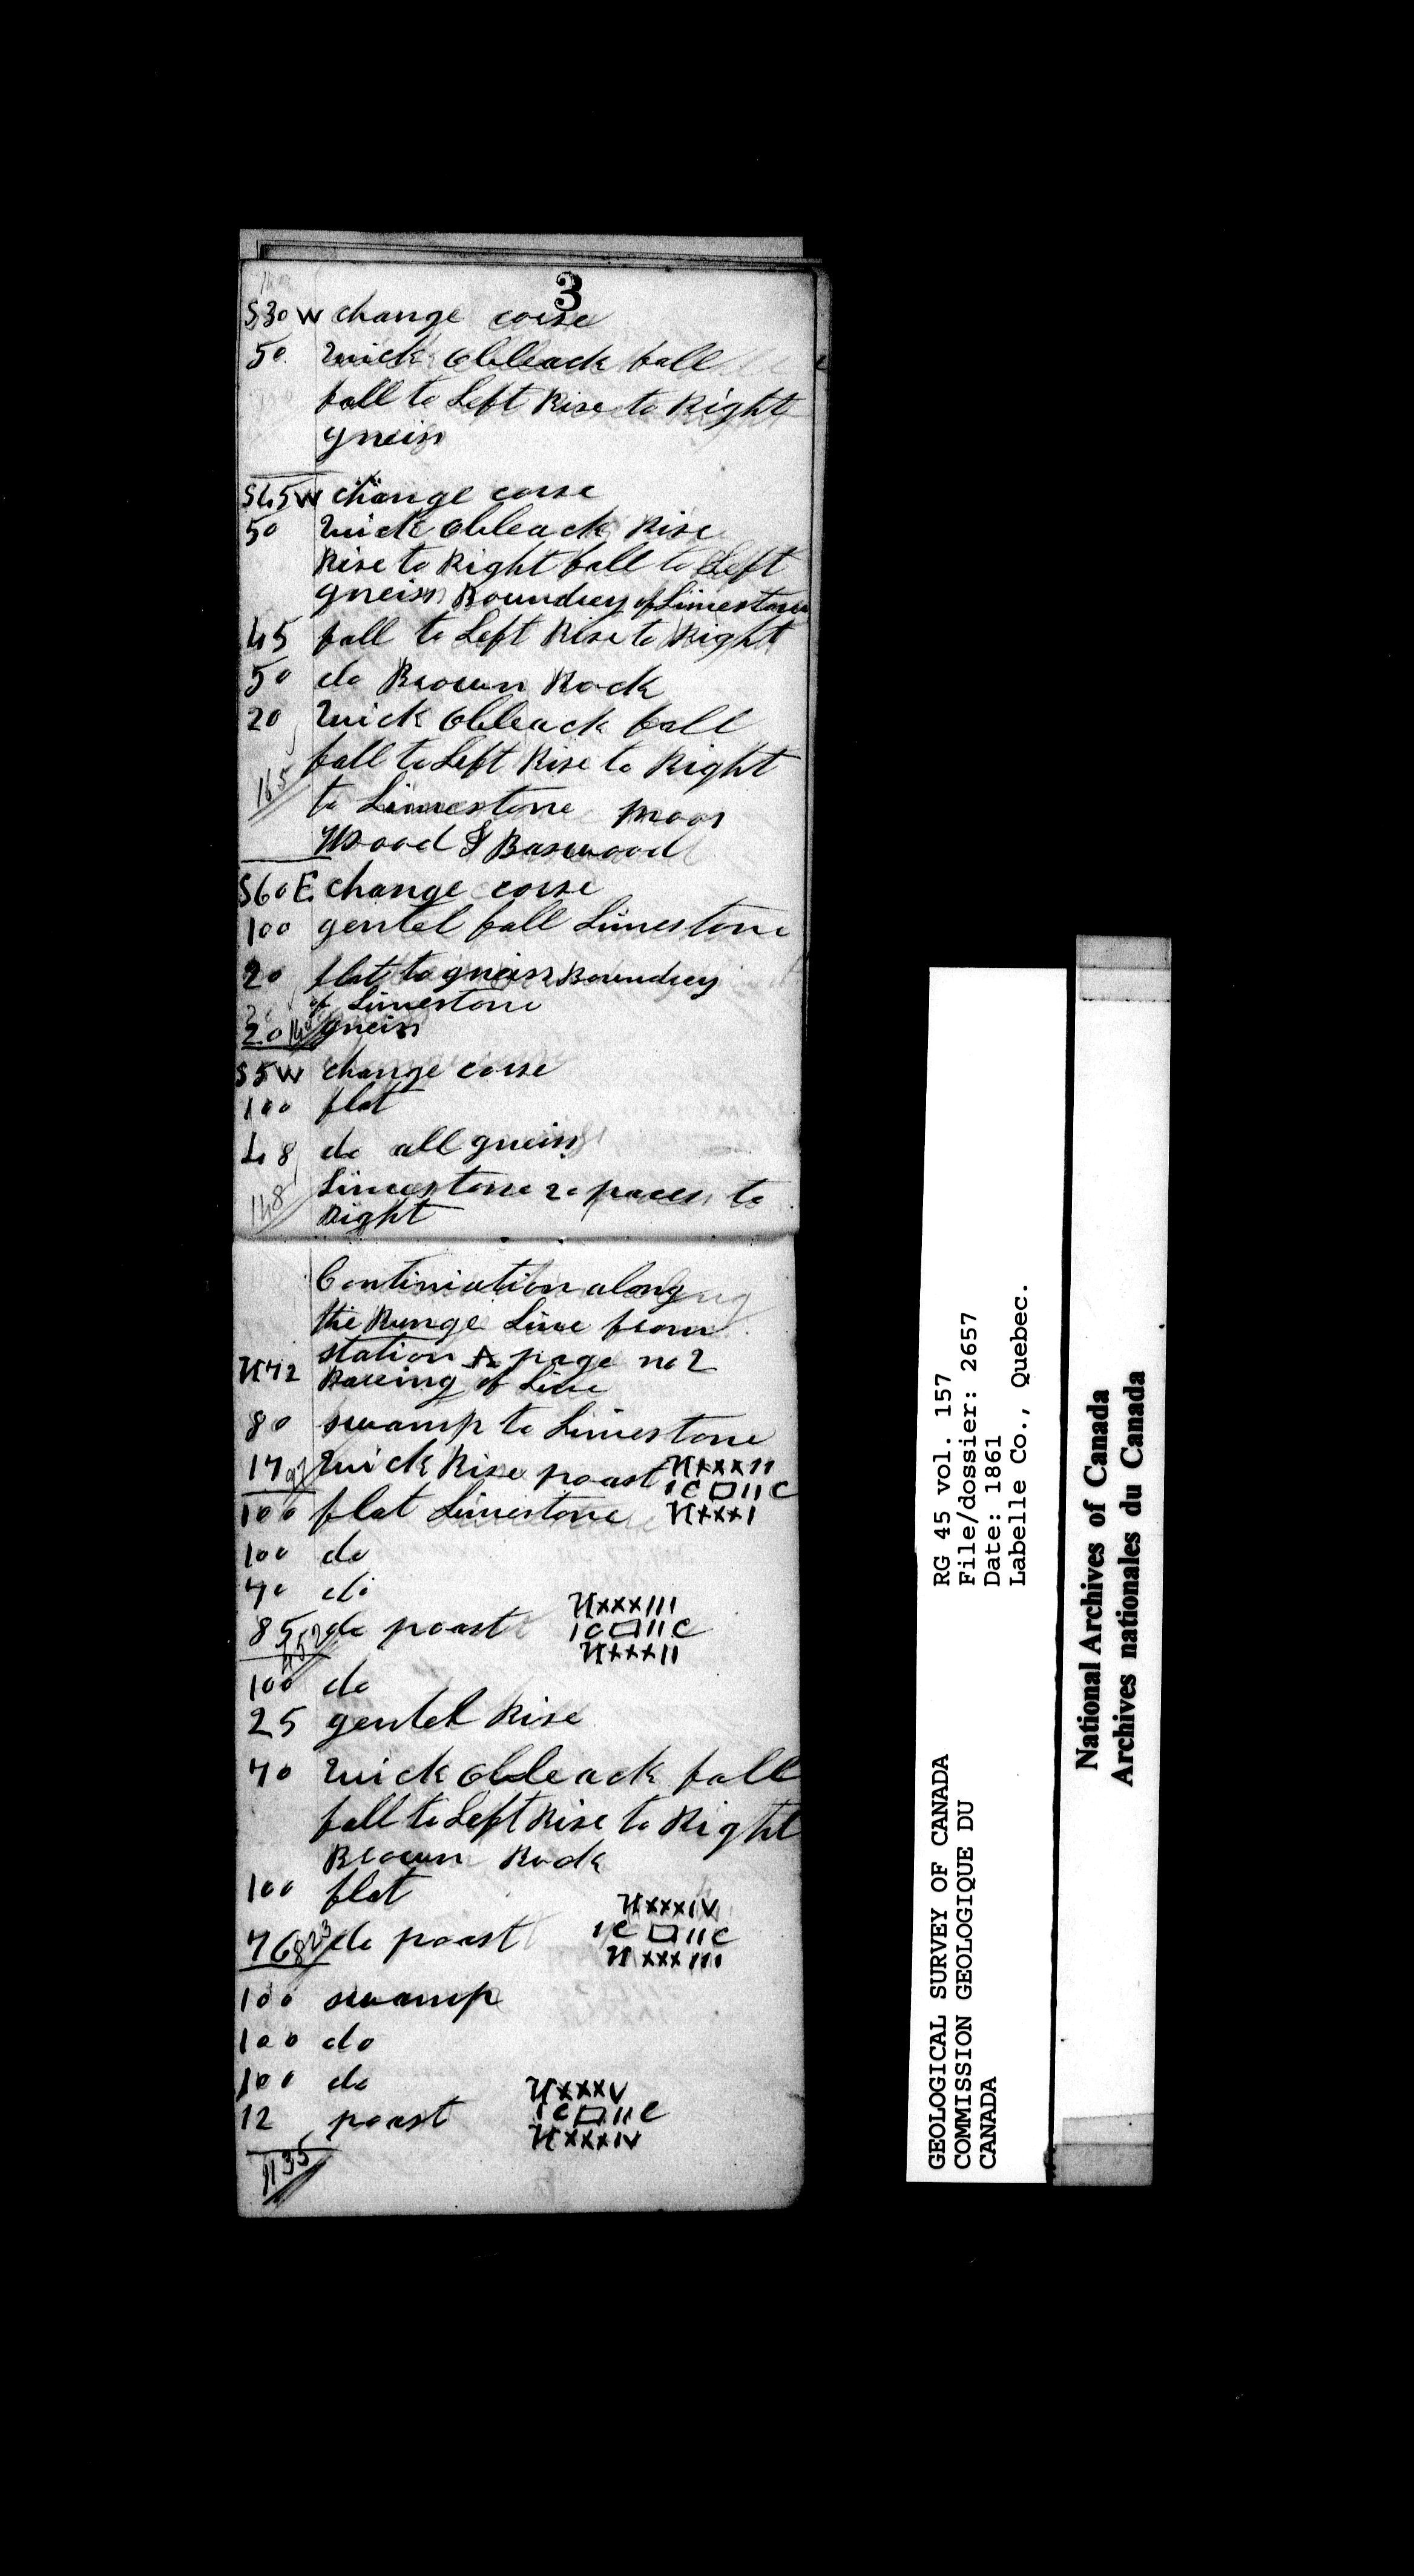 3
S30W change corse
50 quick obleack fall
fall to Left Rise to Right
gneiss
S45W change corse
50 quick obleack Rise
Rise to Right fall to Left
gneiss Boundrey of Limestone
45 fall to Left Rise to Right
50 do Brown Rock
20 quick obleack fall
fall to Left Rise to Right
165 to Limestone
Wood & Baswood
S60E change corse
100 gentel fall Limestone
20 flat to gneiss Boundrey
of Limestone
20 gneiss
S5W change corse
100 flat
48 do all gneiss
Limestone 20 paces to
148 Right
Continiation along
the Runge Line from
station A page no 2
N72 Bareing of Line
80 swamp to Limestone
17 97 quick Rise poast NXXXII
IC □ IIC
100 flat Limestone NXXXI
100 do
70 do
NXXXIII
85 452 do poast IC □ IIC
NXXXII
100 do
25 gentel Rise
70 quick obleack fall
fall to Left Rise to Right
Brown Rock
100 flat
NXXXIV
76 823 do poast IC □ IIC
NXXXIII
100 swamp
100 do
100 do
NXXXV
12 poast IC □ IIC
NXXXIV
1135
GEOLOGICAL SURVEY OF CANADA
COMMISSION GEOLOGIQUE DU
CANADA
RG 45 vol. 157
File/dossier: 2657
Date: 1861
Labelle Co., Quebec.
National Archives of Canada
Archives nationales du Canada